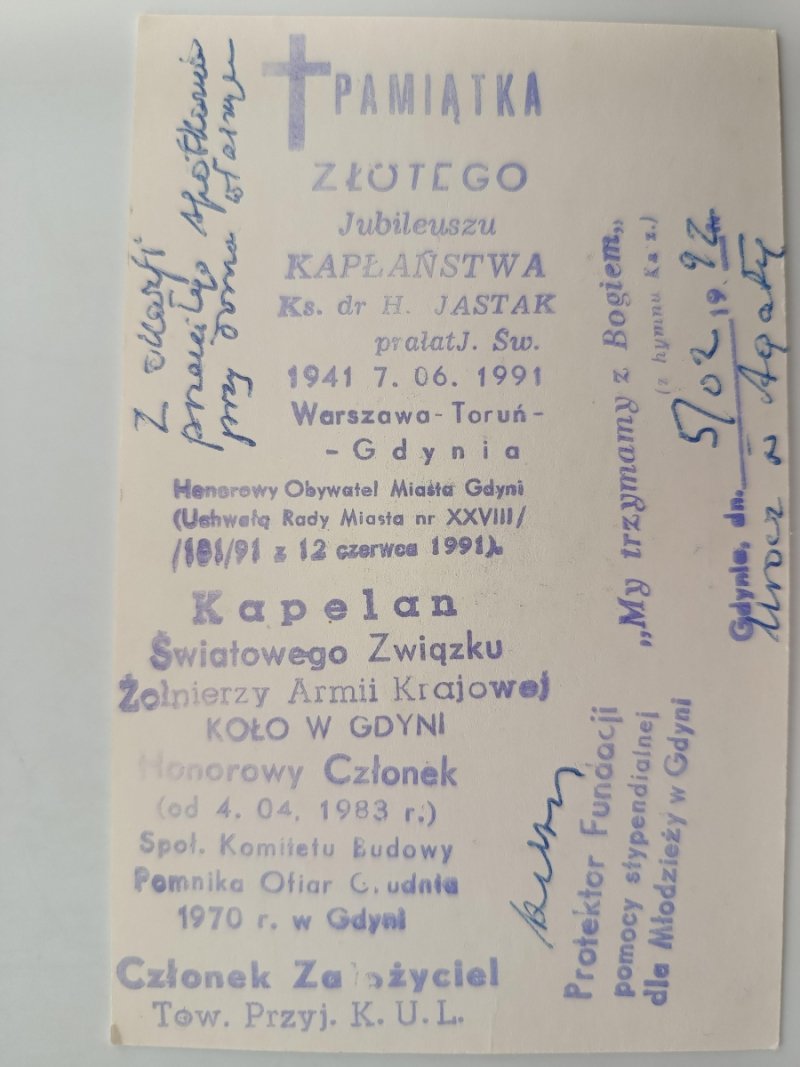 PAMIĄTKA
ZŁOTEGO
Jubileuszu
KAPŁAŃSTWA
Ks. dr H. JASTAK
prałat J. Św.
1941 7. 06. 1991
Warszawa-Toruń-
-Gdynia
Honorowy Obywatel Miasta Gdyni
(Uchwałą Rady Miasta nr XXVIII/
/181/91 z 12 czerwca 1991).
Kapelan
Światowego Związku
Żołnierzy Armii Krajowej
KOŁO W GDYNI
Honorowy Członek
(od 4. 04. 1983 r.)
Społ. Komitetu Budowy
Pomnika Ofiar Grudnia
1970 r. w Gdyni
Członek Założyciel
Tow. Przyj. K. U. L.
Z okazji
spotkania
przy
Protektor Fundacji
pomocy stypendialnej
dla Młodzieży w Gdyni
„My trzymamy z Bogiem„
(z hymnu Kasz.)
Gdynia, dn. 5/02 1992 r.
Urocz św Agaty